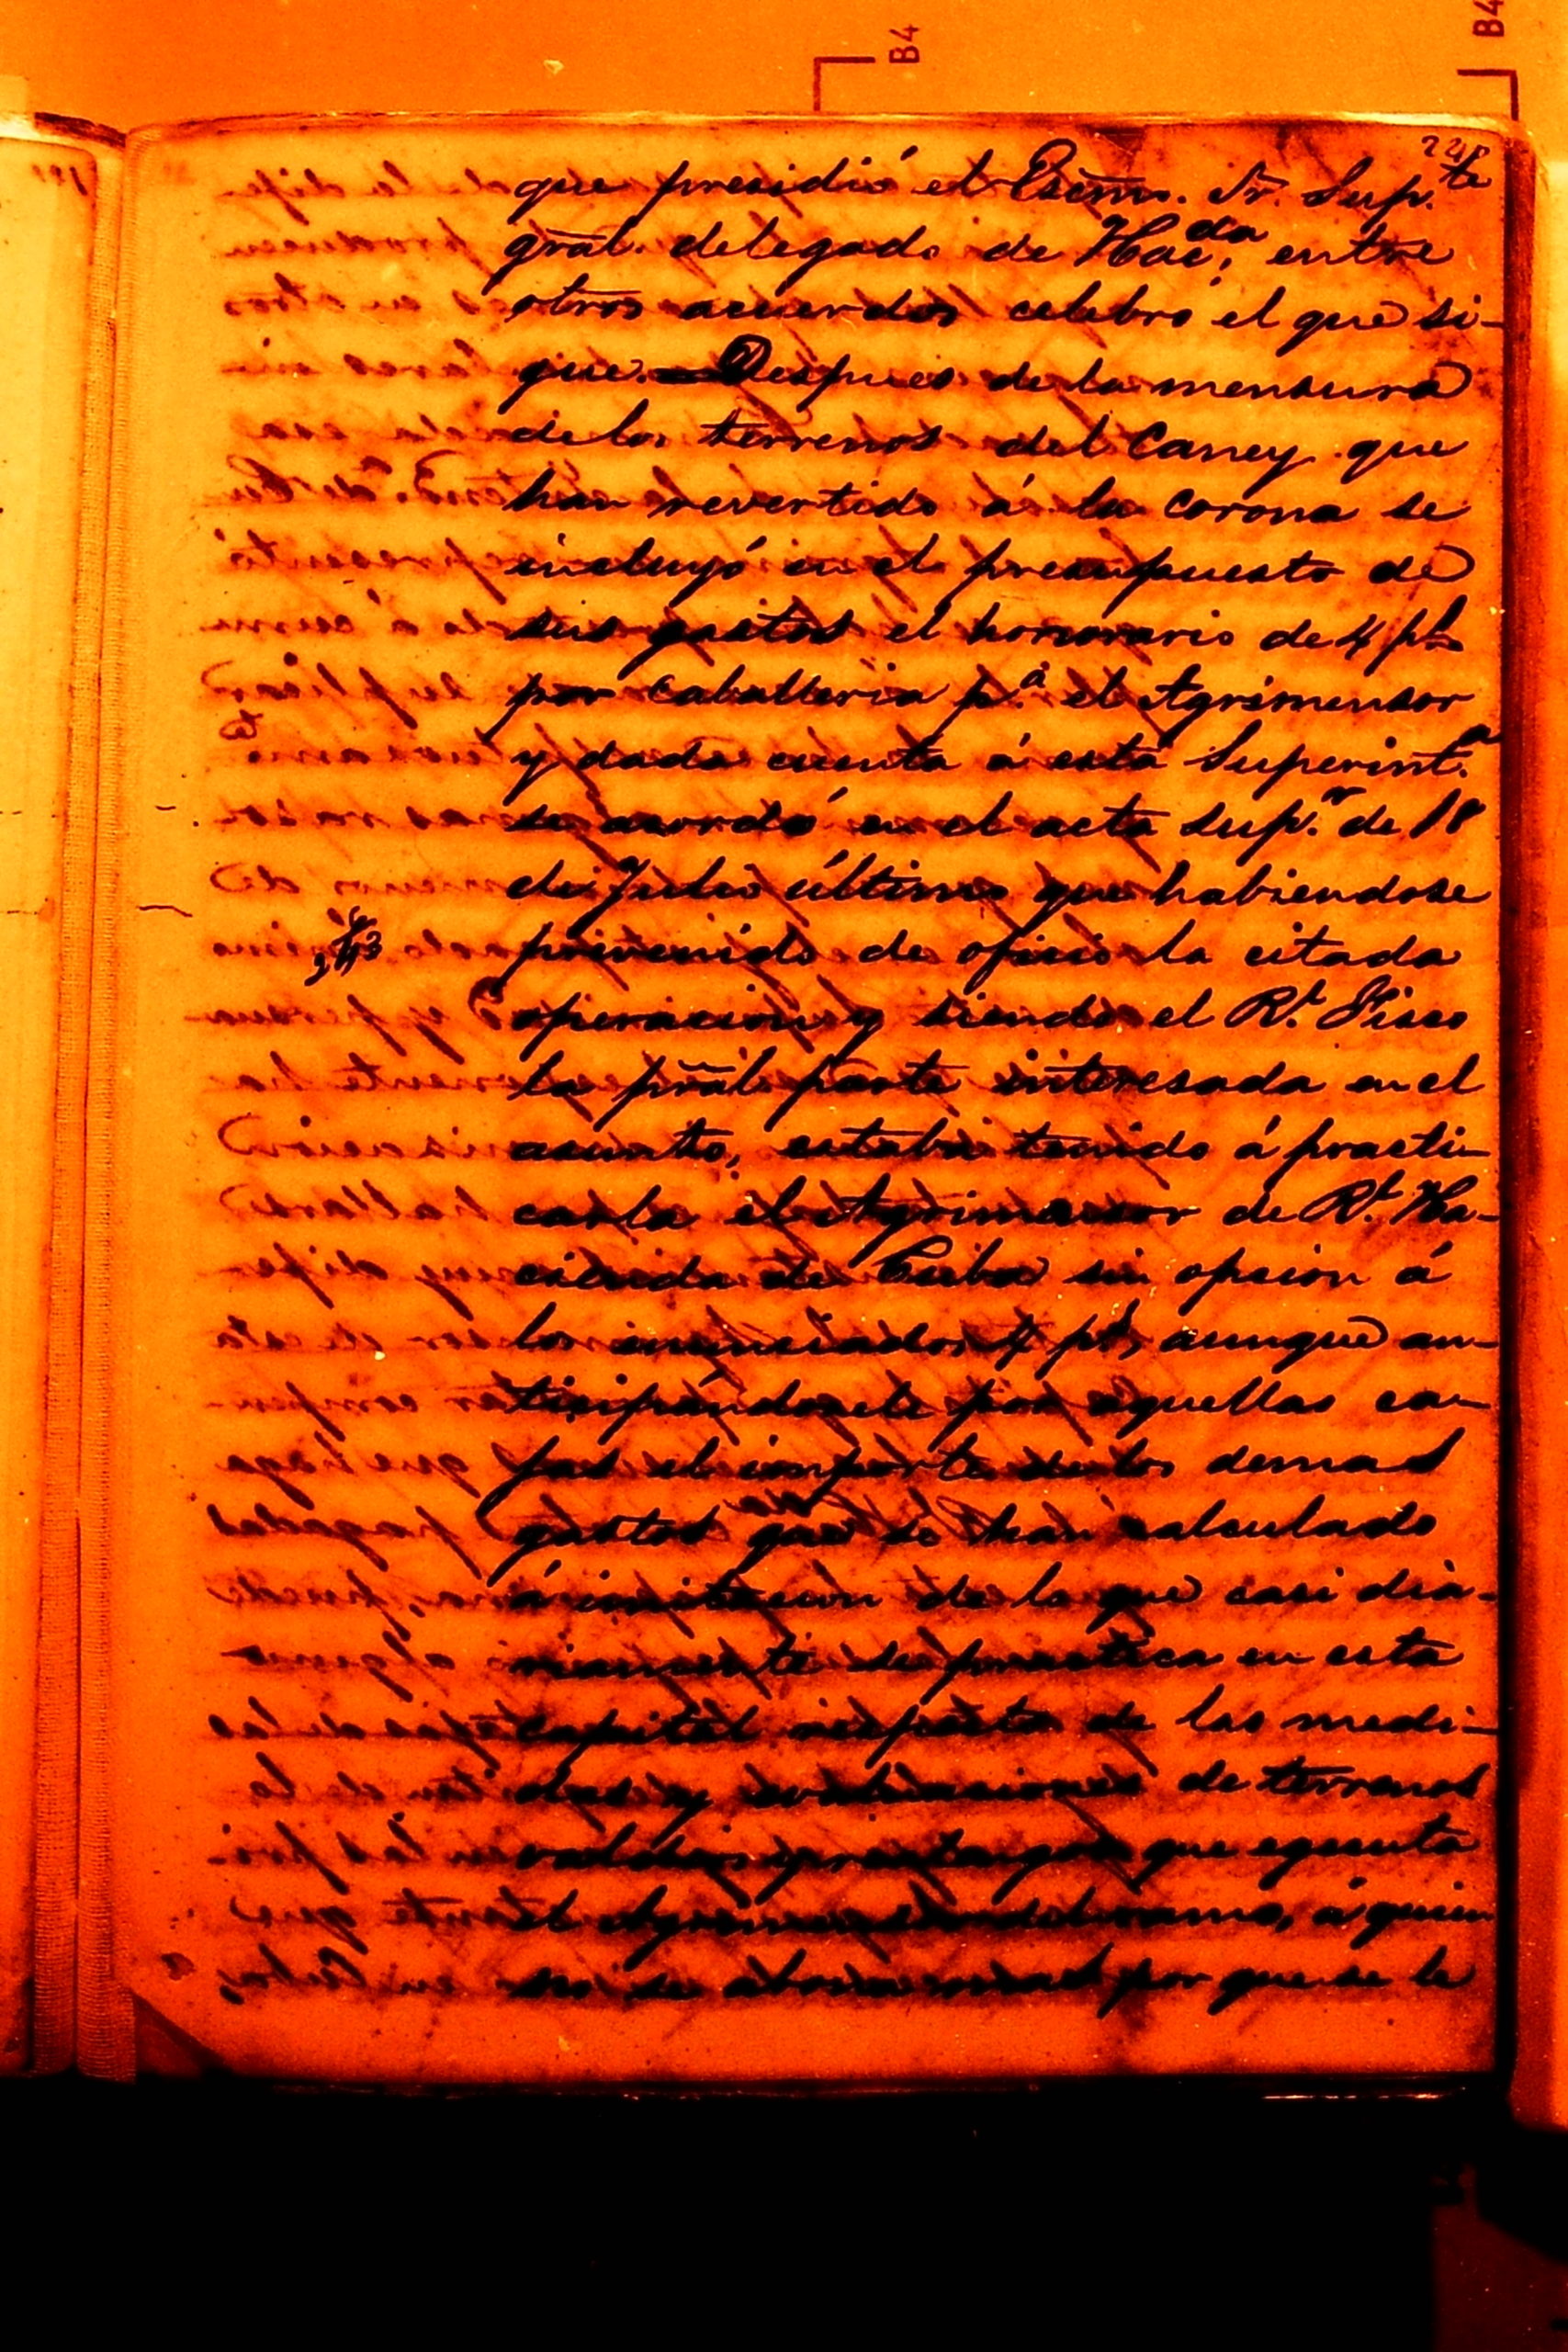 B4
B4
que presidió el Escmo. Sr. Sup.te
gral. delegado de Hac.da, entre
otros acuerdos celebró el que si-
gue.— Despues de la mensura
de los terrenos del Caney que
han revertido á la corona se
incluyó en el presupuesto de
sus gastos el honorario de 4 p.s
por caballeria p.a el Agrimensor
y dada cuenta á esta Superint.a
se acordó en el acta sup.r de 18
de Julio último que habiendose
prevenido de oficio la citada
operacion y siendo el R.l Fisco
la pral. parte interesada en el
asunto, estaba tenido á practi-
carla el Agrimensor de R.l Ha-
cienda de Cuba sin opcion á
los enunciados 4 p.s, aunque an-
ticipándosele por aquellas ca-
jas el importe de los demas
gastos que se han calculado
á imitacion de lo que casi dia-
riamente se practica en esta
capital respecto de las medi-
das y evaluaciones de terrenos
que egecuta
el Agrimensor del ramo, á quien
no se abona mas por que se le